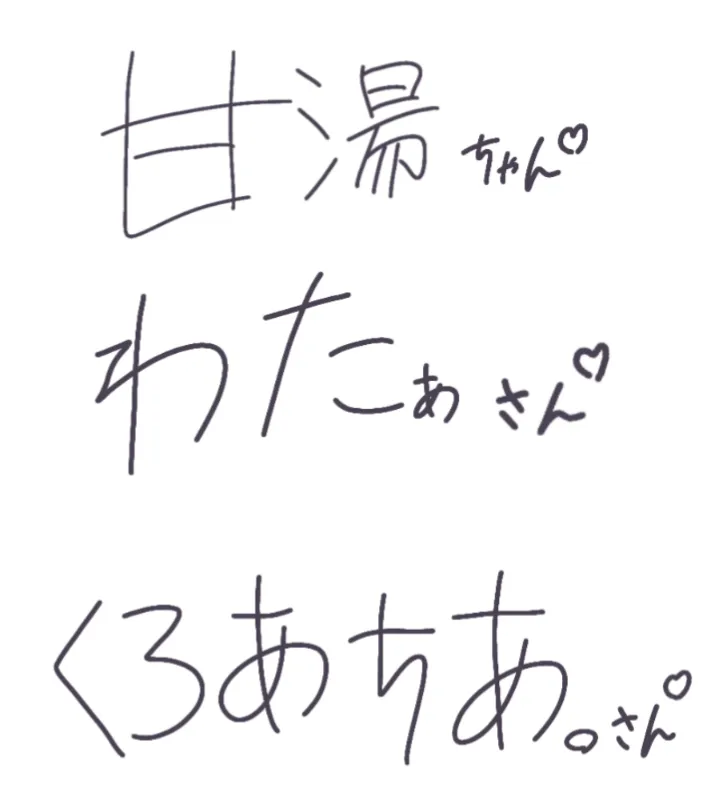 甘湯ちゃん♡
わたぁさん♡
くろあちあ。さん♡